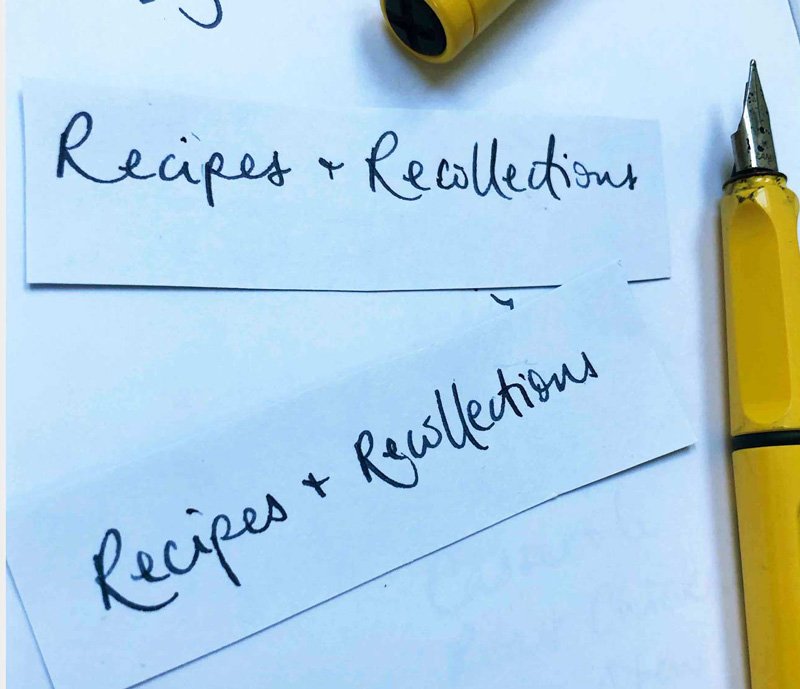 Recipes + Recollections
Recipes + Recollections